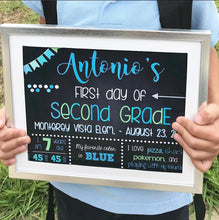 Antonio's
First day of
Second Grade
Monterey Vista Elem. - August 23, 2
I am
7
Years old
My favorite color is
BLUE
I love pizza,
pokemon, and
playing with my
45 45